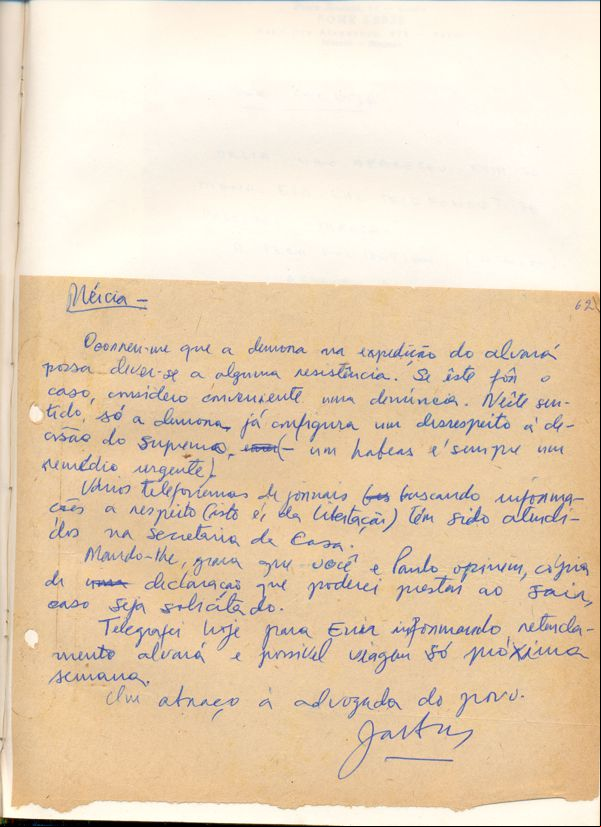 Mércia —
62
Ocorreu-me que a demora na expedição do alvará
possa dever-se a alguma resistência. Se êste fôr o
caso, considero conveniente uma denúncia. Nêste sen-
tido, só a demora, já configura um desrespeito à de-
cisão do Supremo, (— um habeas é sempre um
remédio urgente).
Vários telefonemas de jornais buscando informa-
ções a respeito (isto é, da libertação) têm sido atendi-
dos na secretaria da Casa.
Mando-lhe, para que você e Paulo opinem, cópia
de declaração que poderei prestar ao sair,
caso seja solicitado.
Telegrafei hoje para informando retarda-
mento alvará e possível viagem só próxima
semana.
Um abraço à advogada do povo.